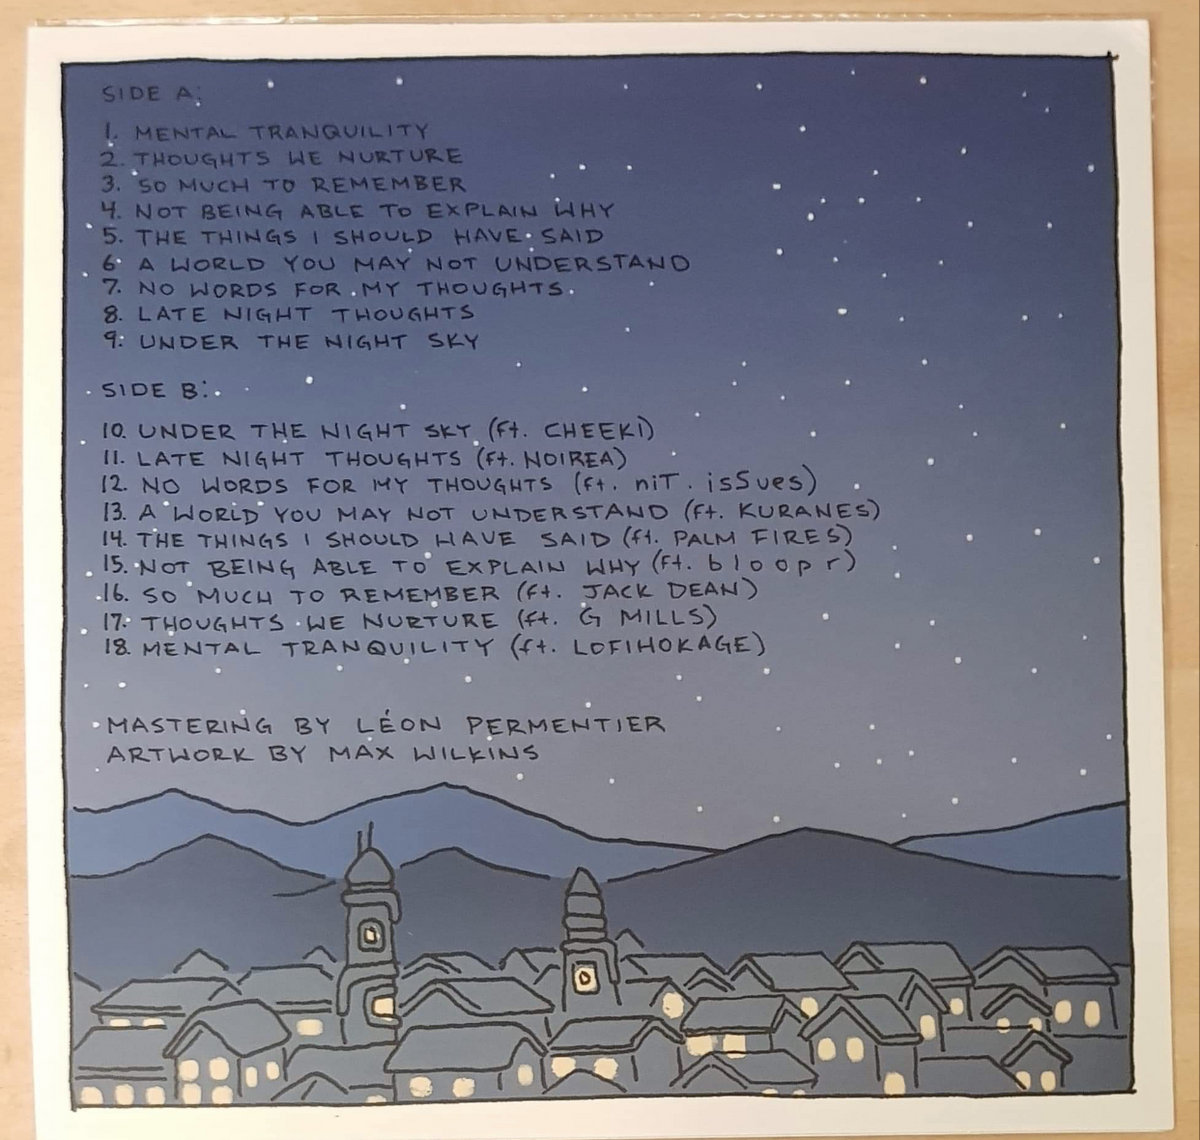 SIDE A:
1. MENTAL TRANQUILITY
2. THOUGHTS WE NURTURE
3. SO MUCH TO REMEMBER
4. NOT BEING ABLE TO EXPLAIN WHY
5. THE THINGS I SHOULD HAVE SAID
6. A WORLD YOU MAY NOT UNDERSTAND
7. NO WORDS FOR MY THOUGHTS
8. LATE NIGHT THOUGHTS
9. UNDER THE NIGHT SKY
SIDE B:
10. UNDER THE NIGHT SKY (ft. CHEEKI)
11. LATE NIGHT THOUGHTS (ft. NOIREA)
12. NO WORDS FOR MY THOUGHTS (ft. niT. isSues)
13. A WORLD YOU MAY NOT UNDERSTAND (ft. KURANES)
14. THE THINGS I SHOULD HAVE SAID (ft. PALM FIRES)
15. NOT BEING ABLE TO EXPLAIN WHY (ft. b l o o p r)
16. SO MUCH TO REMEMBER (ft. JACK DEAN)
17. THOUGHTS WE NURTURE (ft. G MILLS)
18. MENTAL TRANQUILITY (ft. LOFIHOKAGE)
MASTERING BY LÉON PERMENTIER
ARTWORK BY MAX WILKINS